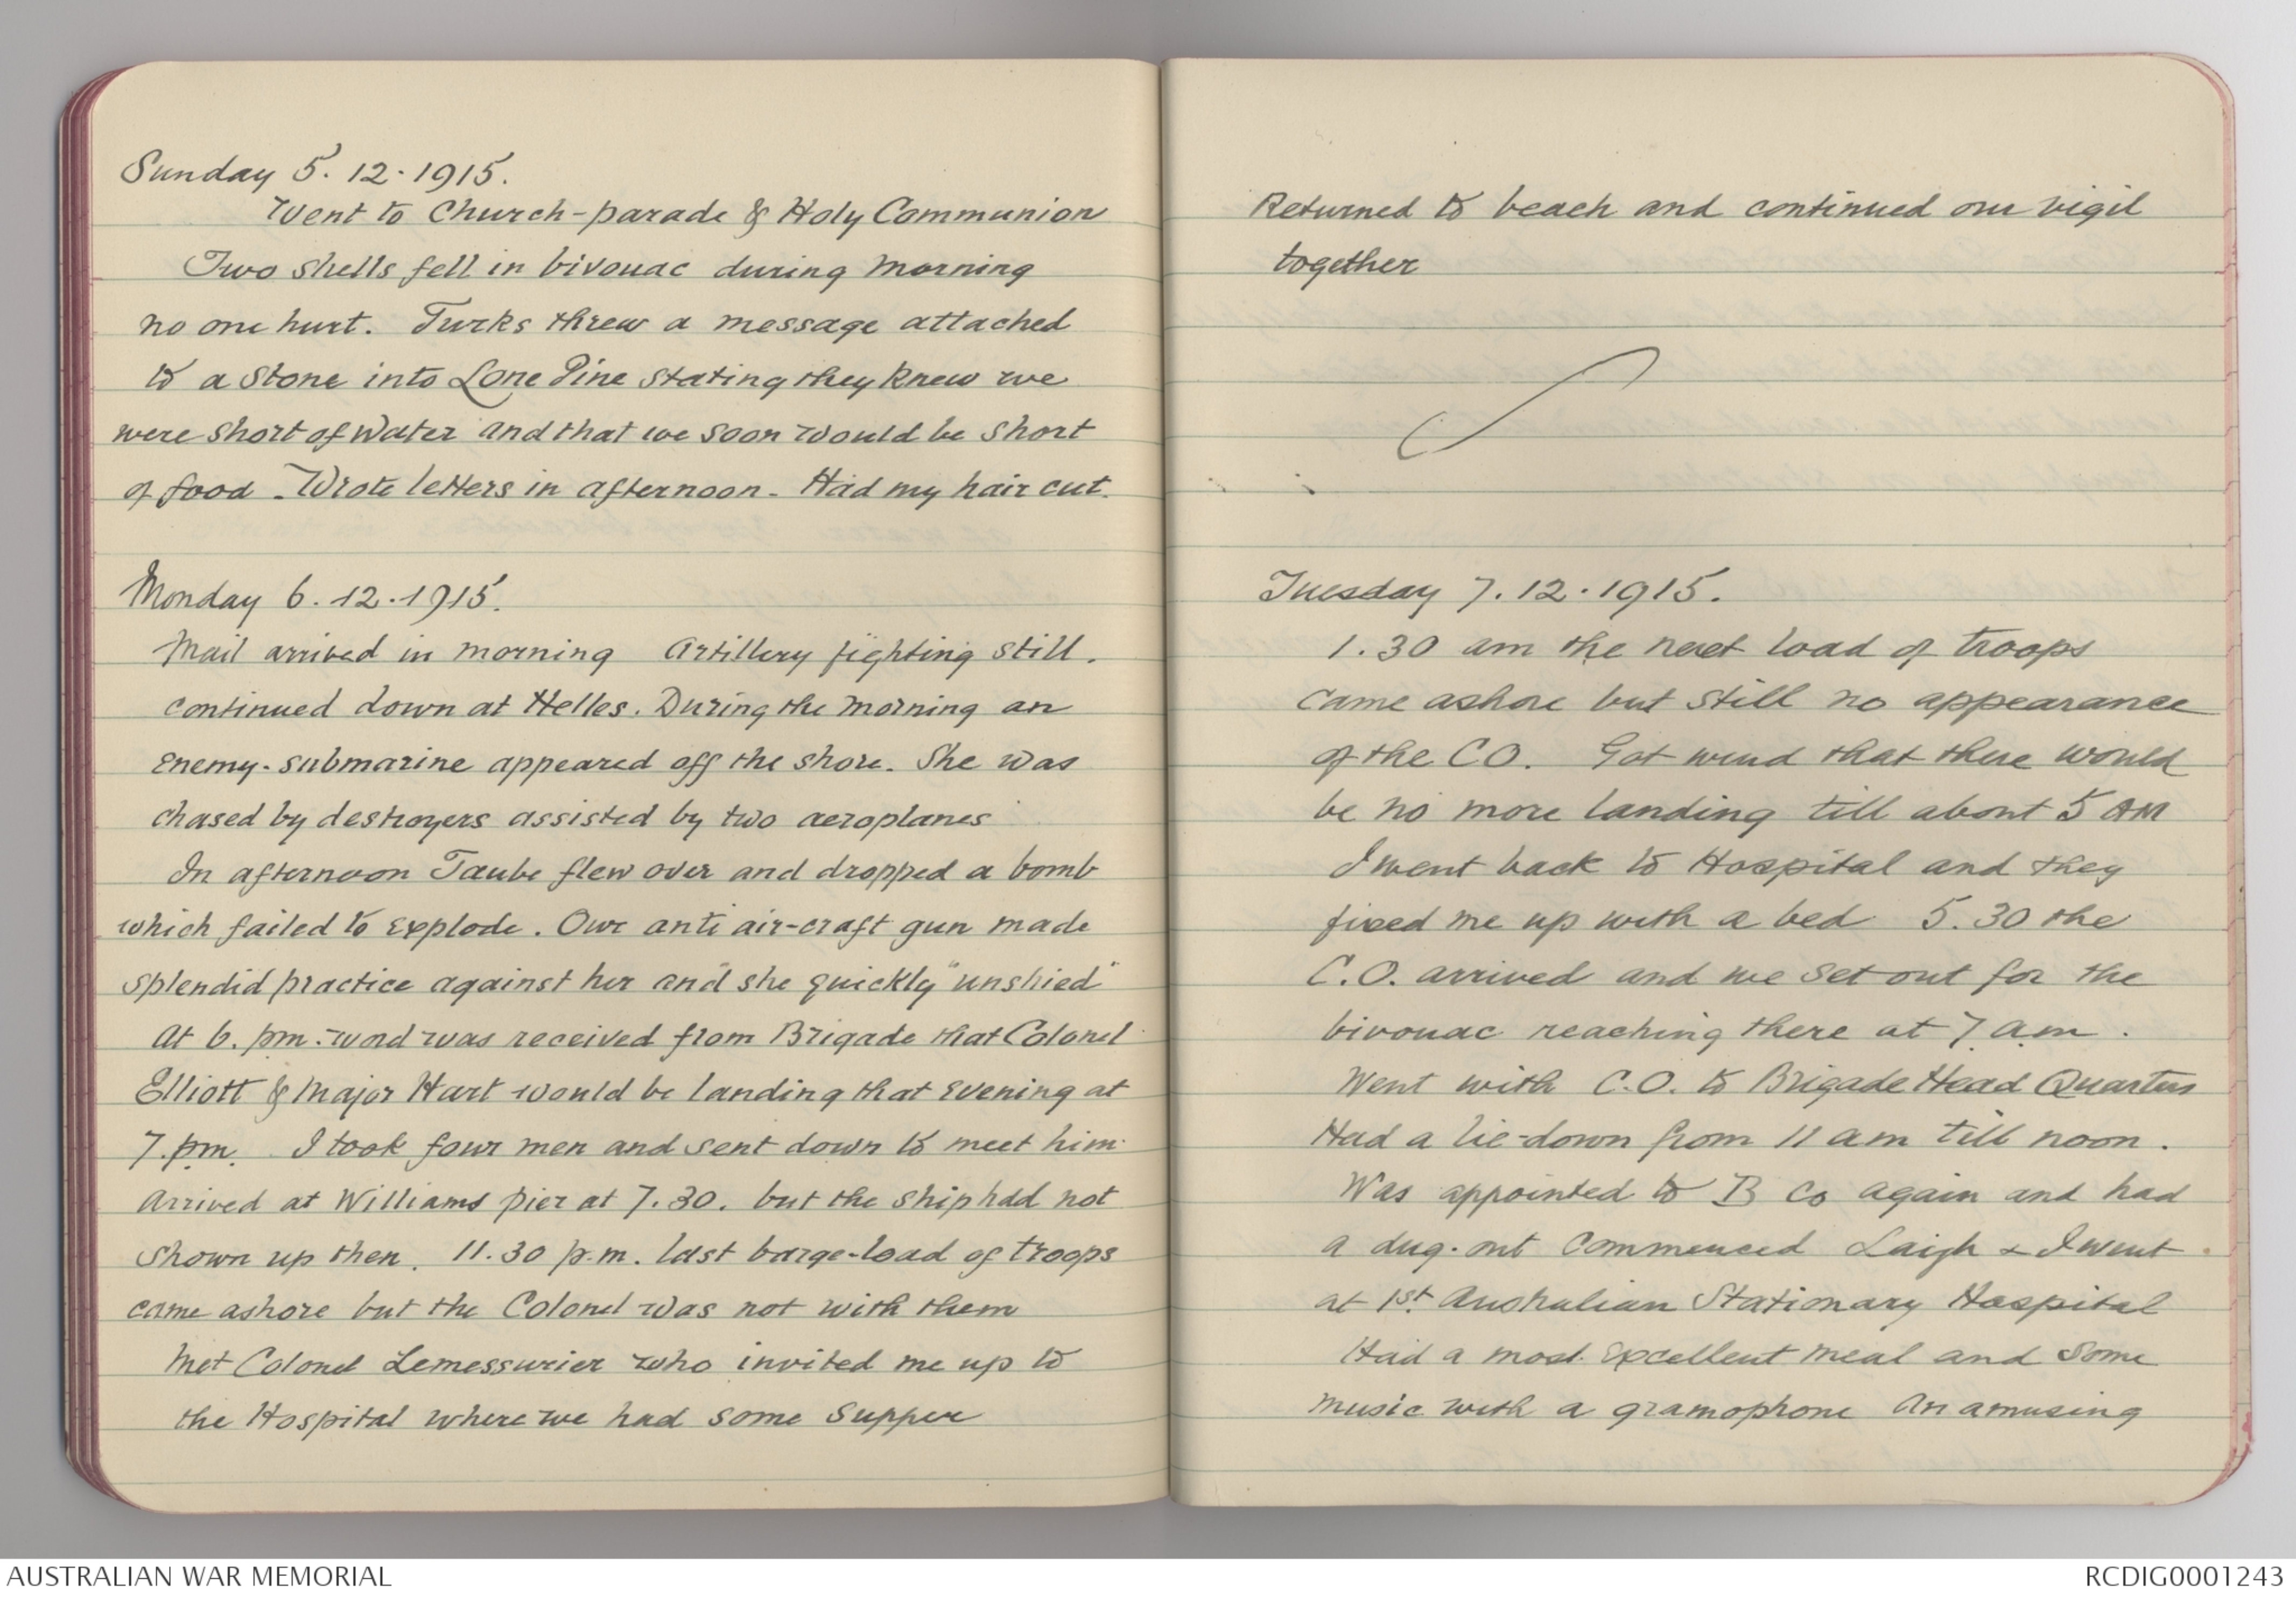 Sunday 5. 12. 1915.
Went to Church-parade & Holy Communion
Two shells fell in bivouac during morning
no one hurt. Turks threw a message attached
to a stone into Lone Pine stating they knew we
were short of water and that we soon would be short
of food. Wrote letters in afternoon. Had my hair cut.
Monday 6. 12. 1915.
Mail arrived in morning Artillery fighting still.
continued down at Helles. During the morning an
enemy-submarine appeared off the shore. She was
chased by destroyers assisted by two aeroplanes
In afternoon Taube flew over and dropped a bomb
which failed to explode. Our anti air-craft gun made
splendid practice against her and she quickly "unshied"
At 6. pm. word was received from Brigade that Colonel
Elliott & Major Hart would be landing that evening at
7. pm. I took four men and sent down to meet him.
Arrived at Williams pier at 7.30. but the ship had not
shown up then. 11.30 p.m. last barge-load of troops
came ashore but the Colonel was not with them
Met Colonel Lemessurier who invited me up to
the Hospital where we had some supper
Returned to beach and continued our vigil
together
Tuesday 7. 12. 1915.
1.30 am the next load of troops
came ashore but still no appearance
of the CO. Got wind that there would
be no more landing till about 5 AM
I went back to Hospital and they
fixed me up with a bed 5.30 the
C.O. arrived and we set out for the
bivouac reaching there at 7 am.
Went with C.O. to Brigade Head Quarters
Had a lie-down from 11 am till noon.
Was appointed to B Co again and had
a dug-out commenced Laigh & I went
at 1st. Australian Stationary Hospital
Had a most excellent meal and some
music with a gramophone An amusing
AUSTRALIAN WAR MEMORIAL
RCDIG0001243